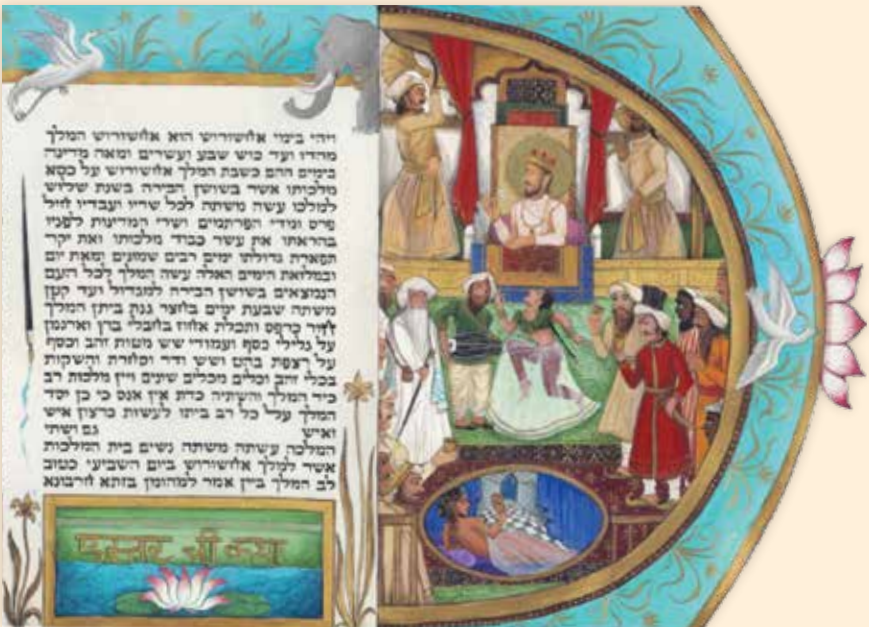 ויהי בימי אחשורוש הוא אחשורוש המלך
מהדו ועד כוש שבע ועשרים ומאה מדינה
בימים ההם כשבת המלך אחשורוש על כסא
מלכותו אשר בשושן הבירה בשנת שלוש
למלכו עשה משתה לכל שריו ועבדיו חיל
פרס ומדי הפרתמים ושרי המדינות לפניו
בהראתו את עשר כבוד מלכותו ואת יקר
תפארת גדולתו ימים רבים שמונים ומאת יום
ובמלואת הימים האלה עשה המלך לכל העם
הנמצאים בשושן הבירה למגדול ועד קטן
משתה שבעת ימים בחצר גנת ביתן המלך
חור כרפס ותכלת אחוז בחבלי בוץ וארגמן
על גלילי כסף ועמודי שש מטות זהב וכסף
על רצפת בהט ושש ודר וסחרת והשקות
בכלי זהב וכלים מכלים שונים ויין מלכות רב
כיד המלך והשתיה כדת אין אנס כי כן יסד
המלך על כל רב ביתו לעשות כרצון איש
ואיש גם ושתי
המלכה עשתה משתה נשים בית המלכות
אשר למלך אחשורוש ביום השביעי כטוב
לב המלך ביין אמר למהומן בזתא חרבונא